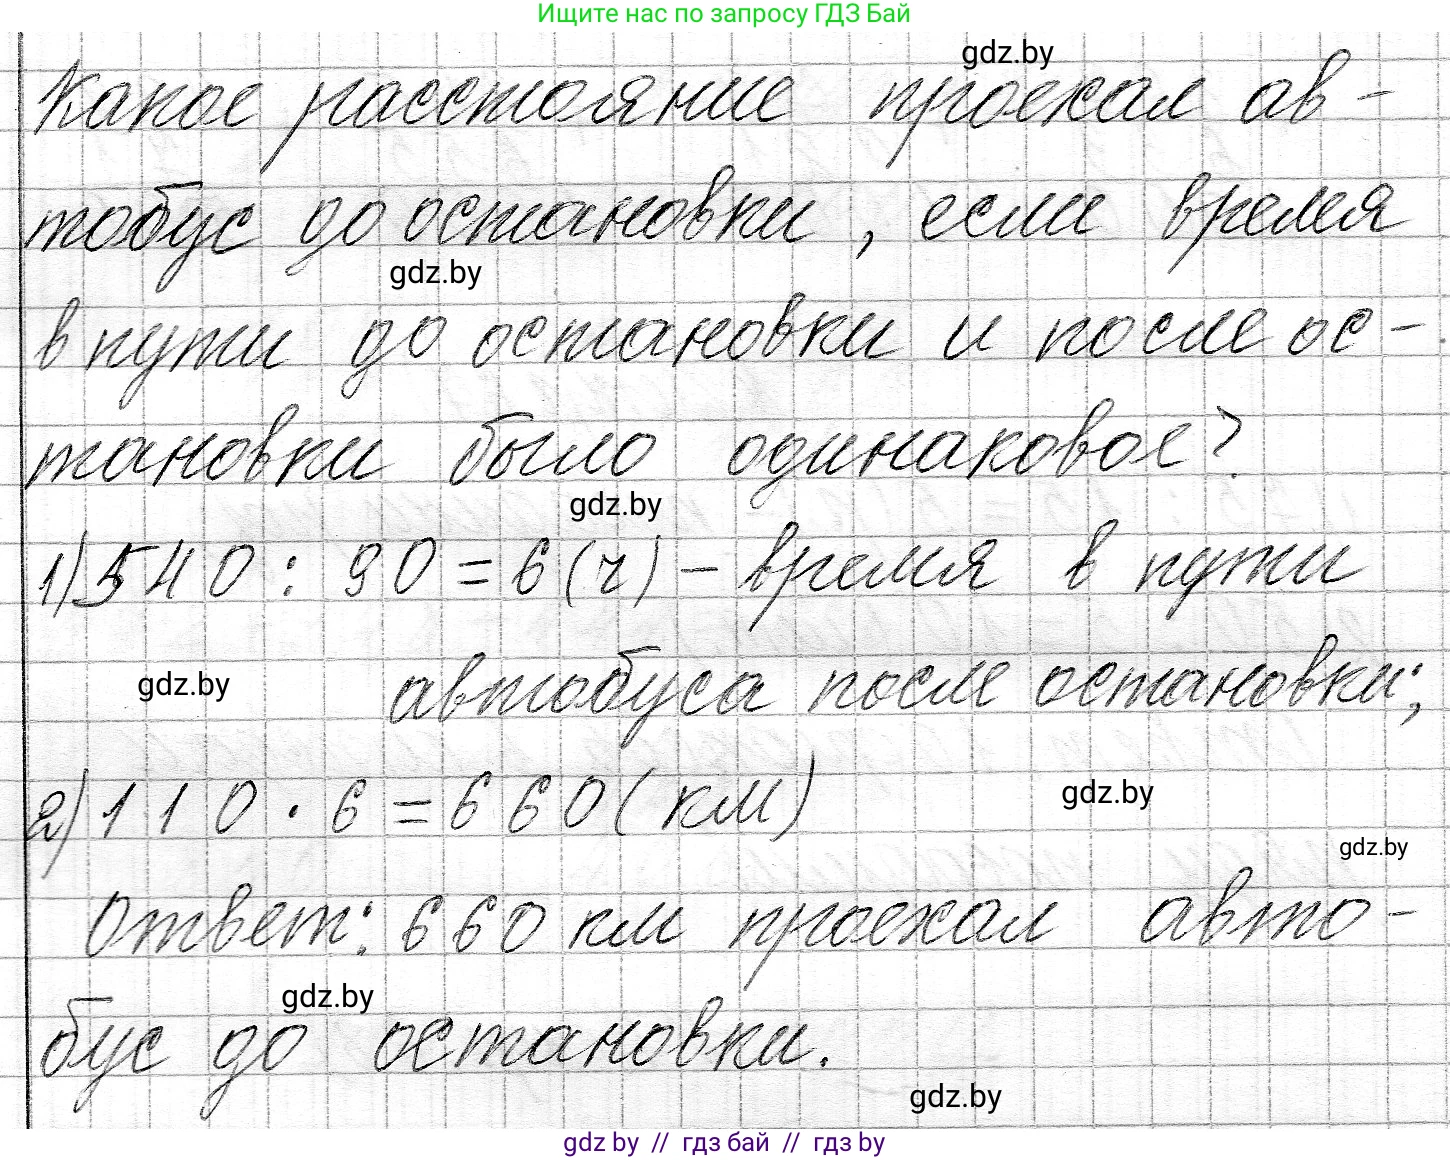 Ищите нас по запросу ГДЗ Бай
gdz.by
Какое расстояние проехал ав-
тобус до остановки, если время
gdz.by
в пути до остановки и после ос-
тановки было одинаковое?
gdz.by
1) 540 : 90 = 6 (ч) – время в пути
gdz.by
автобуса после остановки;
2) 110 · 6 = 660 (км)
gdz.by
gdz.by
Ответ: 660 км проехал авто-
gdz.by
бус до остановки.
gdz.by
gdz by // гдз бай // гдз by